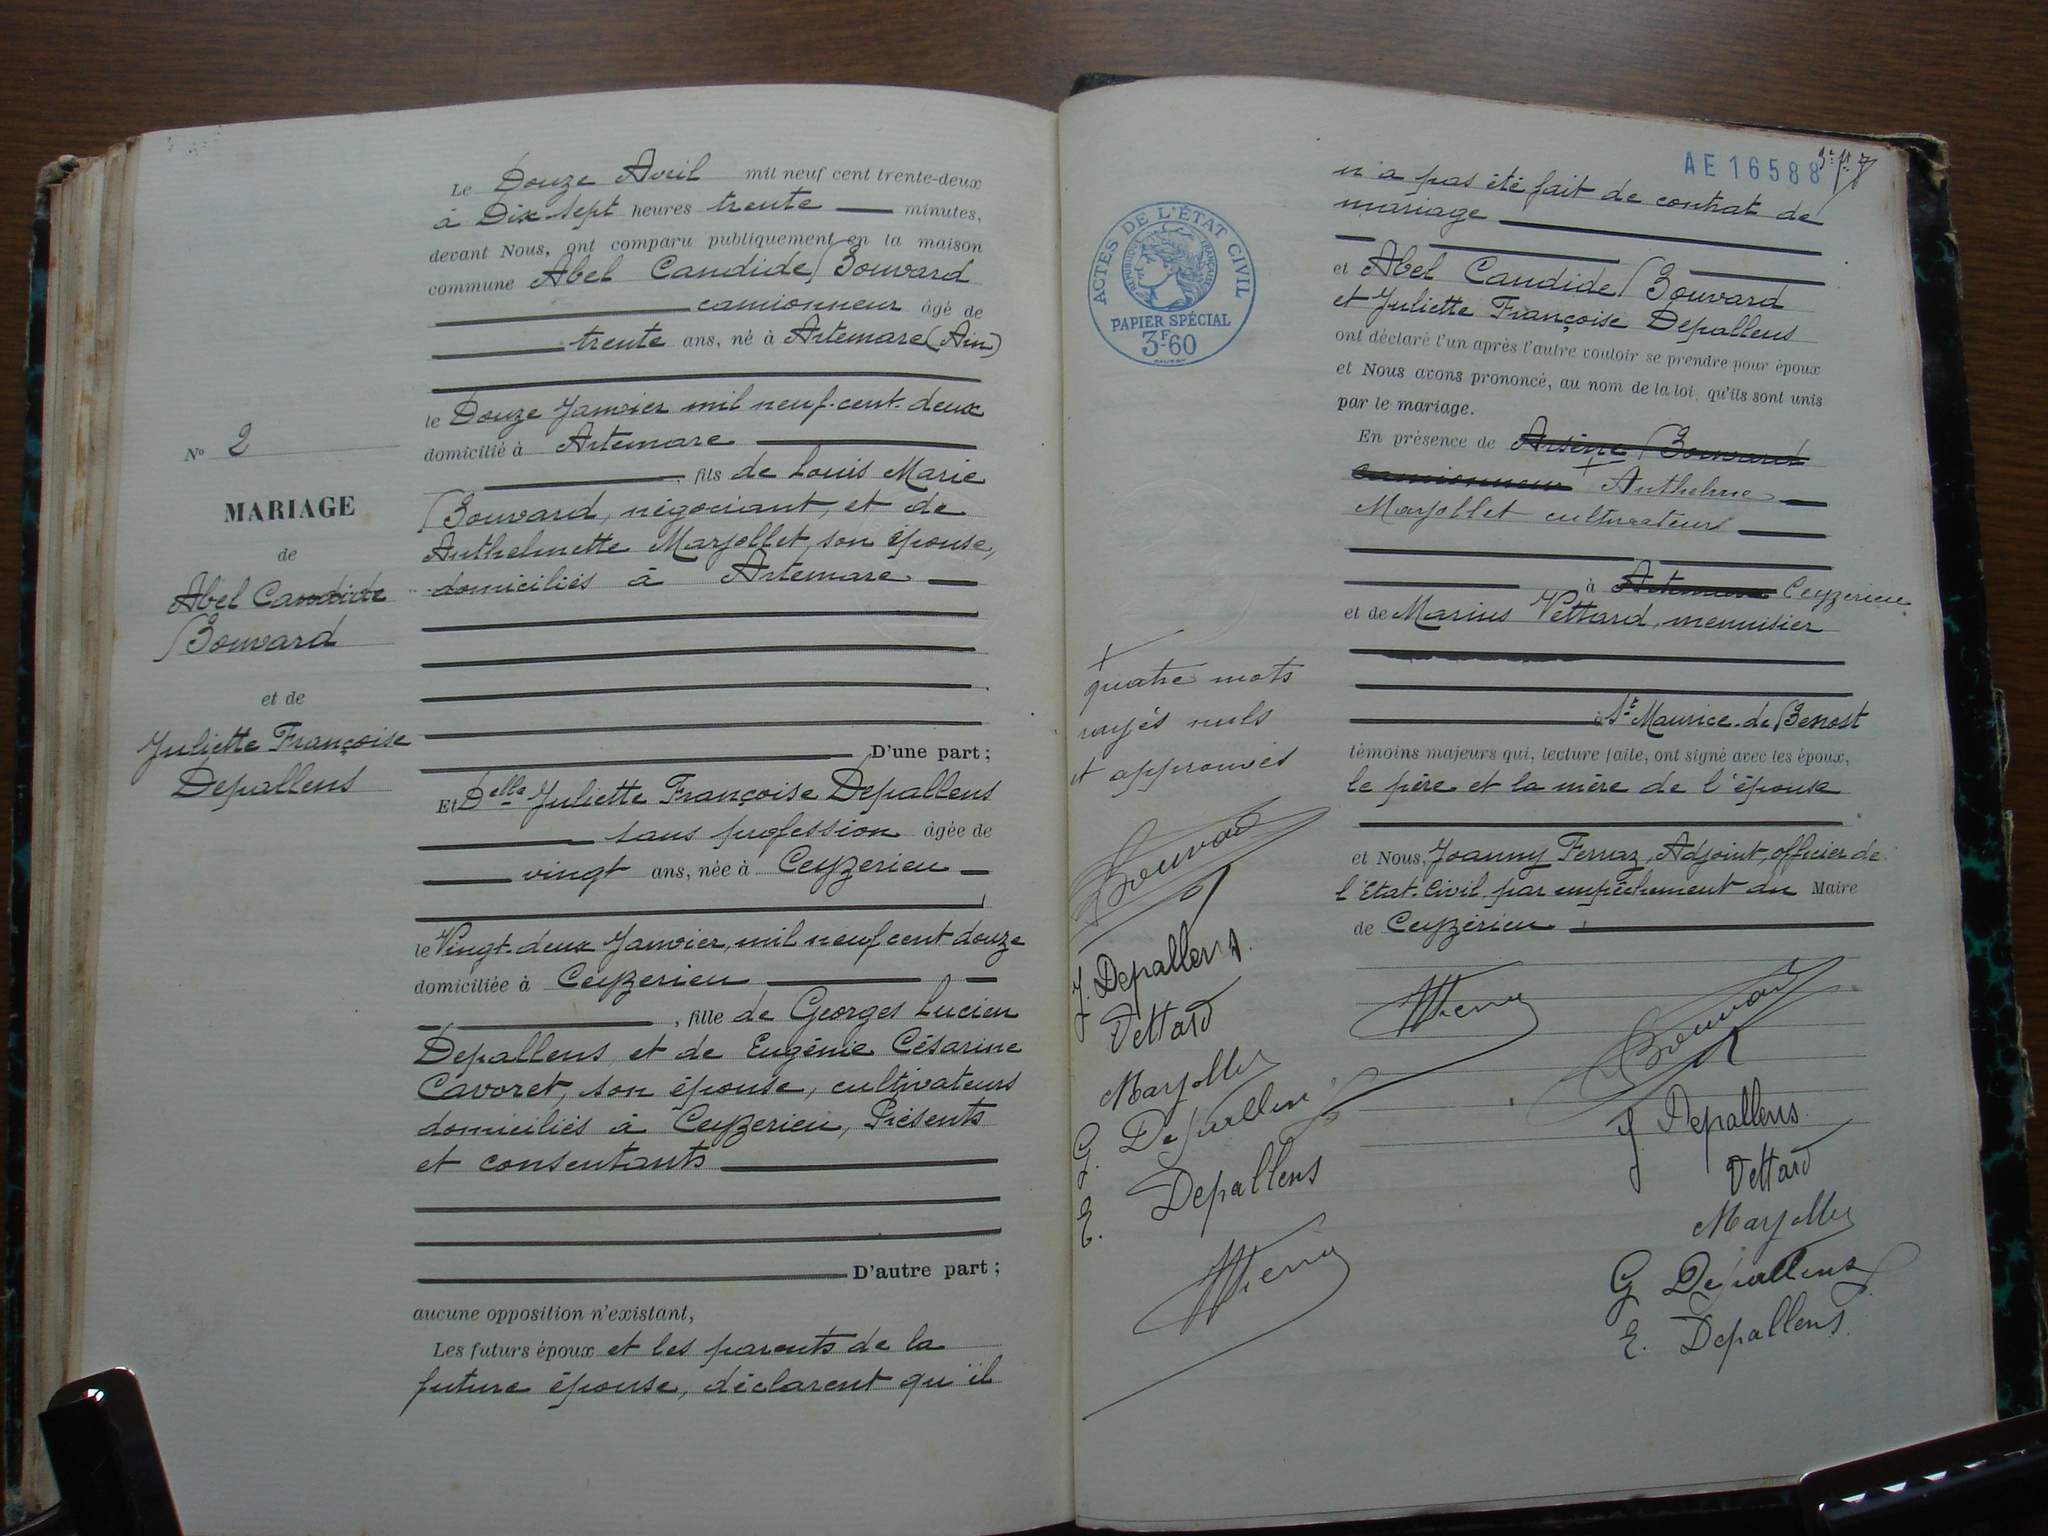 Le Douze Avril mil neuf cent trente-deux
à Dix sept heures trente minutes,
devant Nous, ont comparu publiquement en la maison
commune Abel Candide Bouvard
camionneur âgé de
trente ans, né à Artemare (Ain)
le Douze Janvier mil neuf-cent-deux
domicilié à Artemare
, fils de Louis Marie
Bouvard, négociant, et de
Anthelmette Marjollet, son épouse,
domiciliés à Artemare
D'une part ;
Et Delle Juliette Françoise Depallens
sans profession âgée de
vingt ans, née à Ceyzerieu
le Vingt-deux Janvier, mil neuf cent douze
domiciliée à Ceyzerieu
, fille de Georges Lucien
Depallens, et de Eugénie Césarine
Cavoret, son épouse, cultivateurs
domiciliés à Ceyzerieu, Présents
et consentants
D'autre part ;
aucune opposition n'existant,
Les futurs époux et les parents de la
future épouse, déclarent qu'il
No 2
MARIAGE
de
Abel Candide
Bouvard
et de
Juliette Françoise
Depallens
AE 16588
ACTES DE L'ÉTAT CIVIL
RÉPUBLIQUE FRANÇAISE
PAPIER SPÉCIAL
3F60
n'a pas été fait de contrat de
mariage
et Abel Candide Bouvard
et Juliette Françoise Depallens
ont déclaré l'un après l'autre vouloir se prendre pour époux
et Nous avons prononcé, au nom de la loi, qu'ils sont unis
par le mariage.
En présence de Arsène Bouvard
camionneur + Anthelme
Marjollet cultivateur
à Artemare Ceyzerieu
et de Marius Vettard, menuisier
à St Maurice-de Benost
témoins majeurs qui, lecture faite, ont signé avec les époux,
le père et la mère de l'épouse
et Nous, Joanny Ferraz, Adjoint, officier de
l'Etat-Civil, par empêchement du Maire
de Ceyzérieu
+
quatre mots
rayés nuls
et approuvés
Bouvard
J. Depallens
Vettard
Marjollet
G. Depallens
E. Depallens
Bouvard
J. Depallens
Vettard
Marjollet
G Depallens
E. Depallens